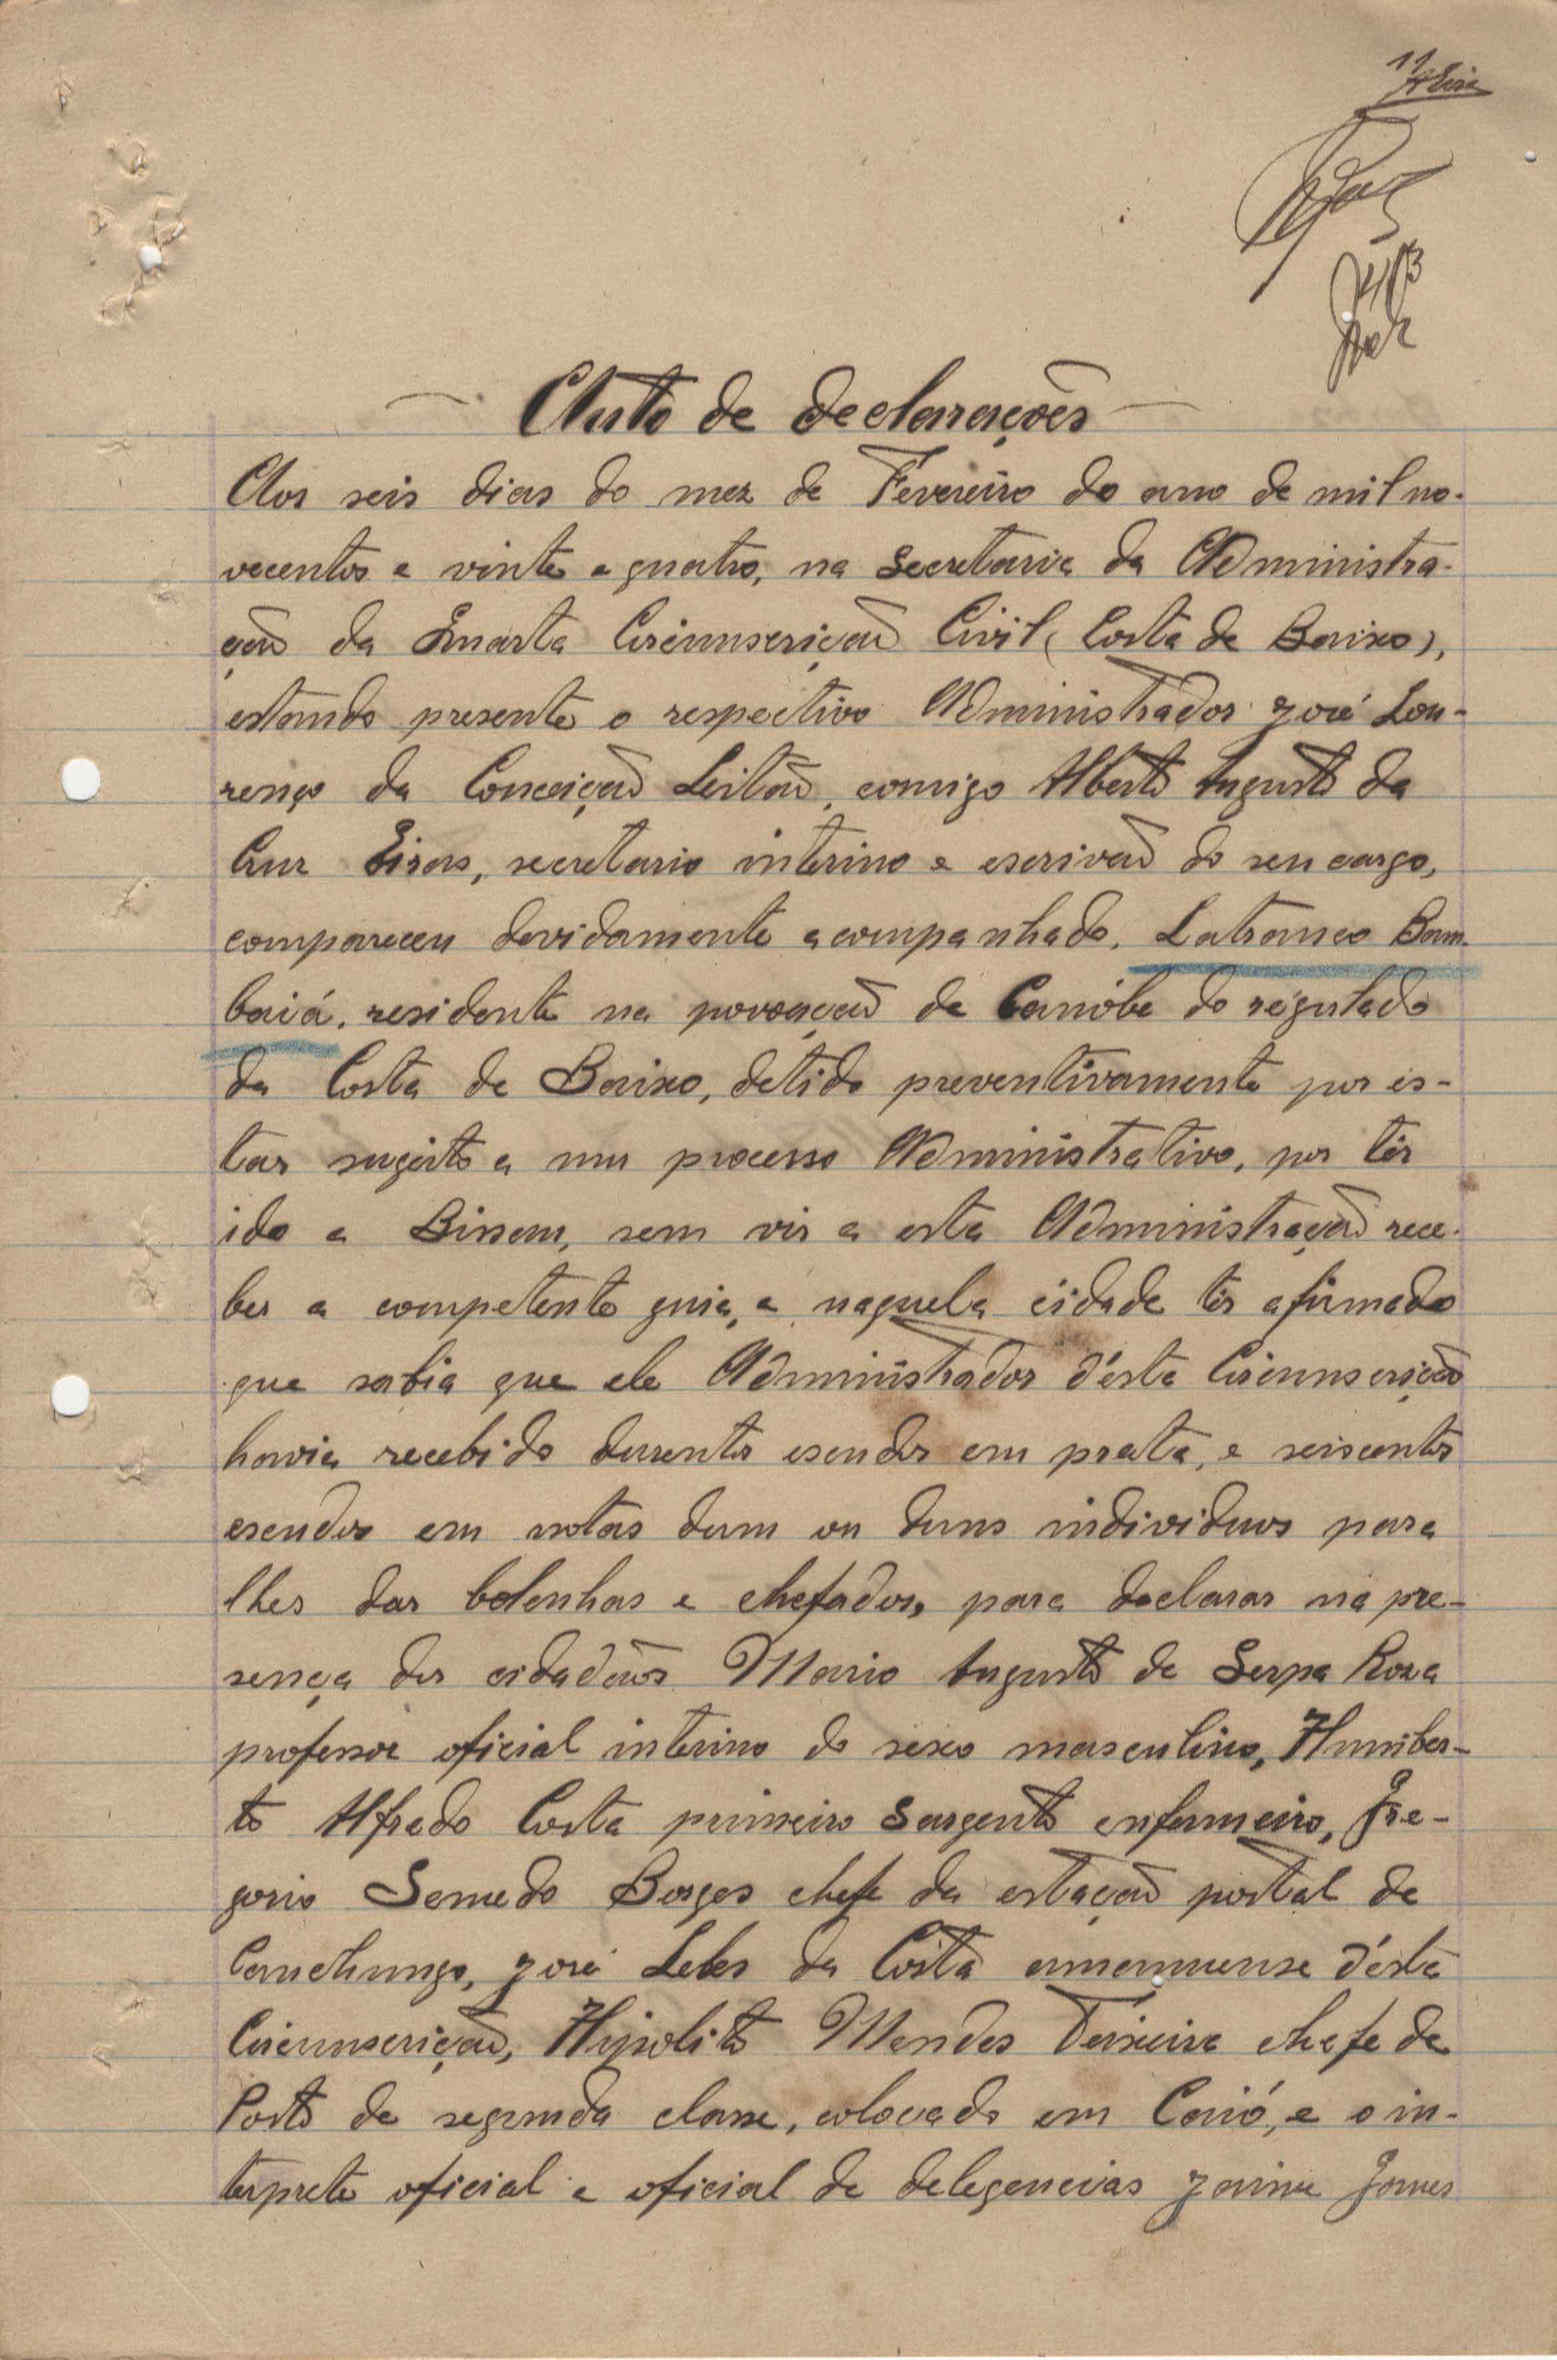 11
Auto de declarações
Aos seis dias do mez de Fevereiro do ano de mil no-
vecentos e vinte e quatro, na Secretaria da Administra-
ção da Quarta Circunscrição Civil (Costa de Baixo),
estando presente o respectivo Administrador José Lou-
renço da Conceição Leitão, comigo Alberto Augusto da
Cruz Eiras, secretario interino e escrivão do seu cargo,
compareceu devidamente acompanhado, Latranco Bam-
baiá, residente na povoação de Canóbe do régulado
da Costa de Baixo, detido preventivamente por es-
tar sugeito a um processo Administrativo, por têr
ido a Bissau, sem vir a esta Administração rece-
ber a competente guia, e naquela cidade têr afirmado
que sabia que ele Administrador d'ésta Circunscrição
havia recebido duzentos escudos em prata, e seiscentos
escudos em notas dum ou duns individuos para
lhes dar bolenhas e chefados, para declarar na pre-
sença dos cidadãos Mario Augusto de Serpa Roza
professor oficial interino do sexo masculino, Humber-
to Alfredo Costa primeiro Sargento enfermeiro, Gre-
gorio Semedo Borges chefe da estação postal de
Canchungo, José Leles da Costa amanuense d'ésta
Circunscrição, Hipolito Mendes Teixeira chefe de
Posto de segunda classe, colocado em Caió, e o in-
terprete oficial e oficial de delegencias Jaime Gomes